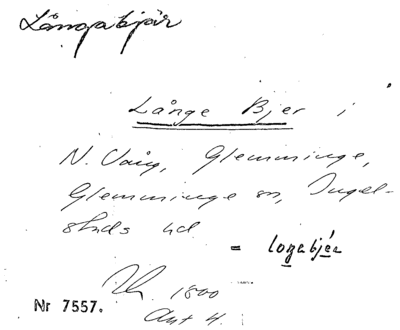 Långabjär
Långe Bjer i
N. Vång, Glemminge,
Glemminge sn, Ingel-
stads hd
= logabjér
1800
Nr 7557.
Akt 4.